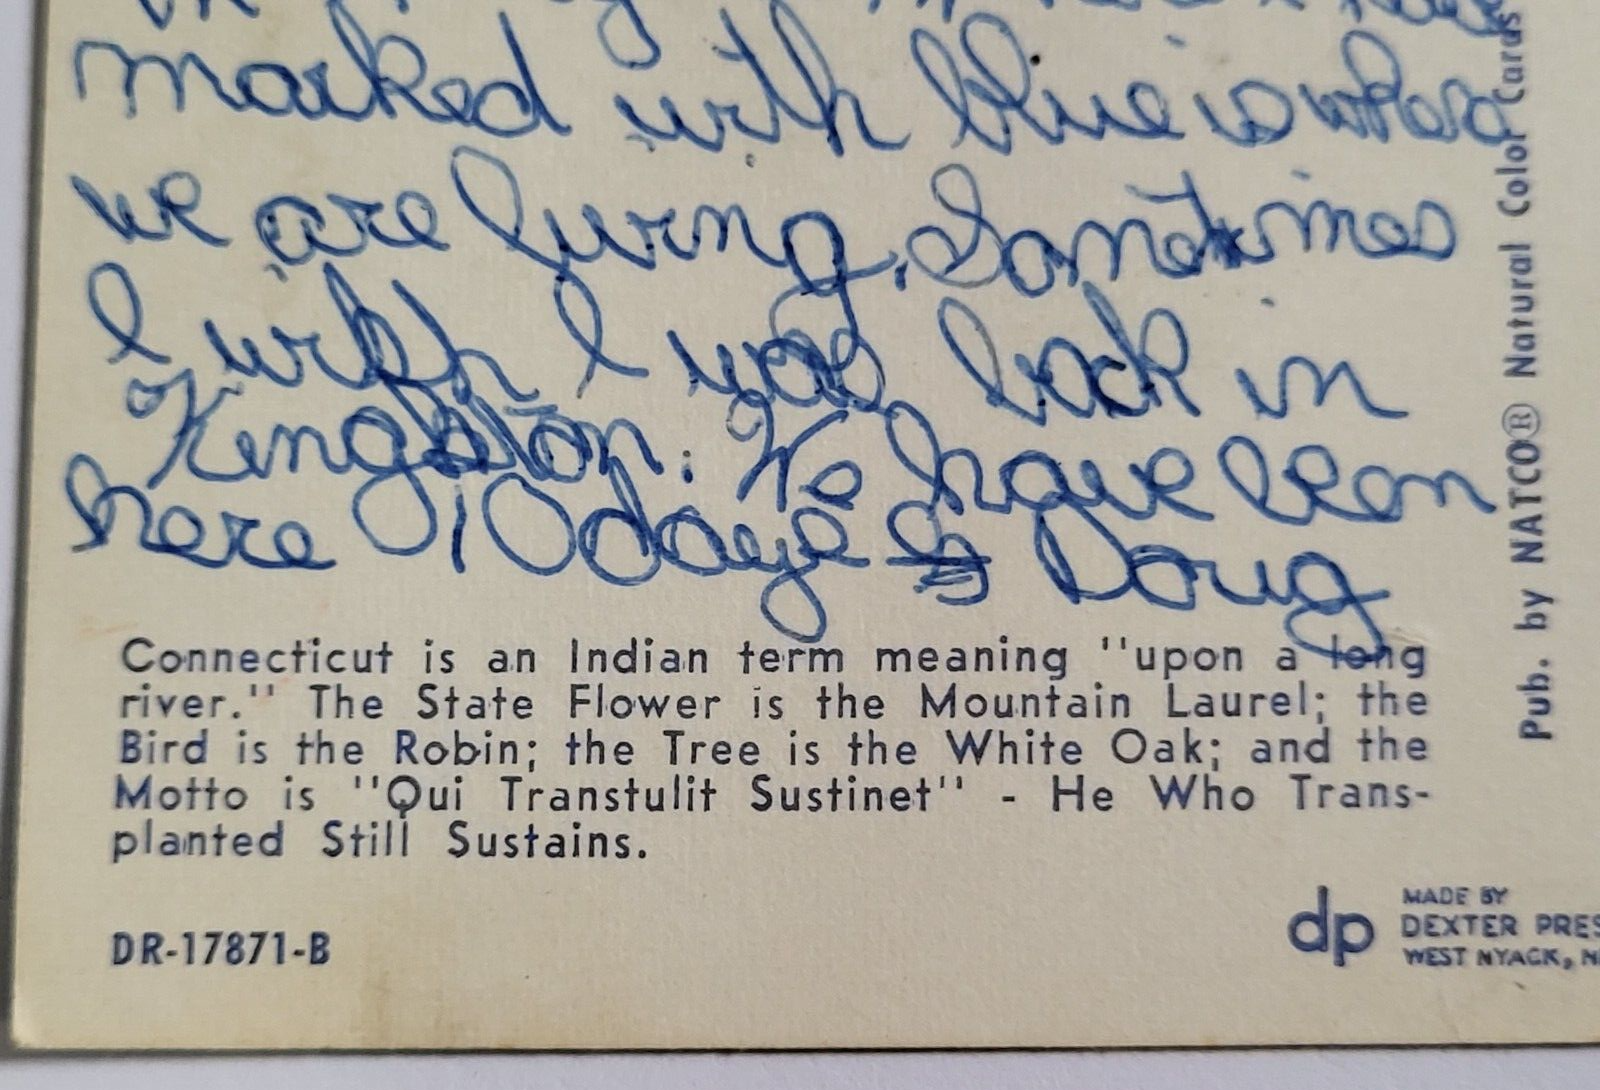 marked with blue is where
we are living. Sometimes
I wish I was back in
Kingston. We have been
here 10 days Doug
Connecticut is an Indian term meaning "upon a long
river." The State Flower is the Mountain Laurel; the
Bird is the Robin; the Tree is the White Oak; and the
Motto is "Qui Transtulit Sustinet" - He Who Trans-
planted Still Sustains.
DR-17871-B
dp
MADE BY
DEXTER PRES
WEST NYACK, N
Pub. by NATCO® Natural Color Cards